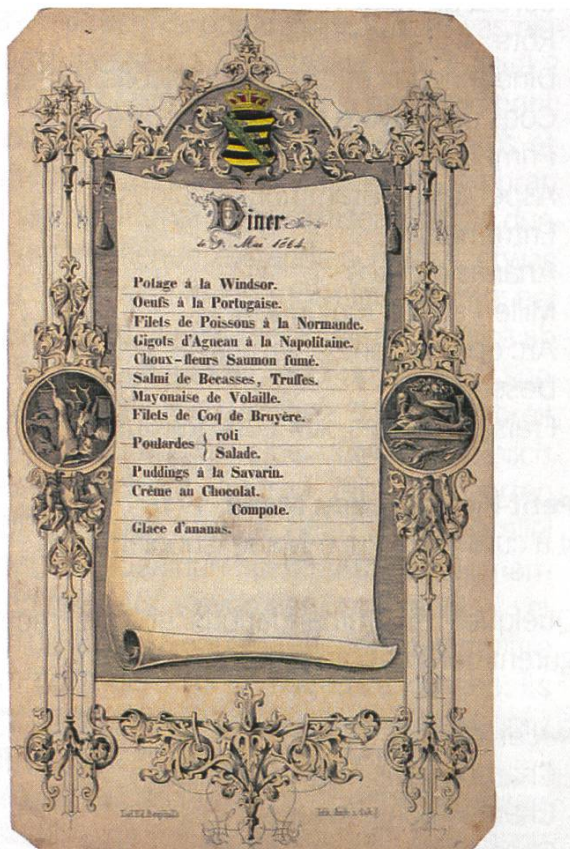 Diner
le 9. Mai 1864.
Potage á la Windsor.
Oeufs á la Portugaise.
Filets de Poissons á la Normande.
Gigots d'Agneau á la Napolitaine.
Choux-fleurs Saumon fumé.
Salmi de Becasses, Truffes.
Mayonaise de Volaille.
Filets de Coq de Bruyère.
Poulardes { roti
Salade.
Puddings á la Savarin.
Crême au Chocolat.
Compote.
Glace d'ananas.